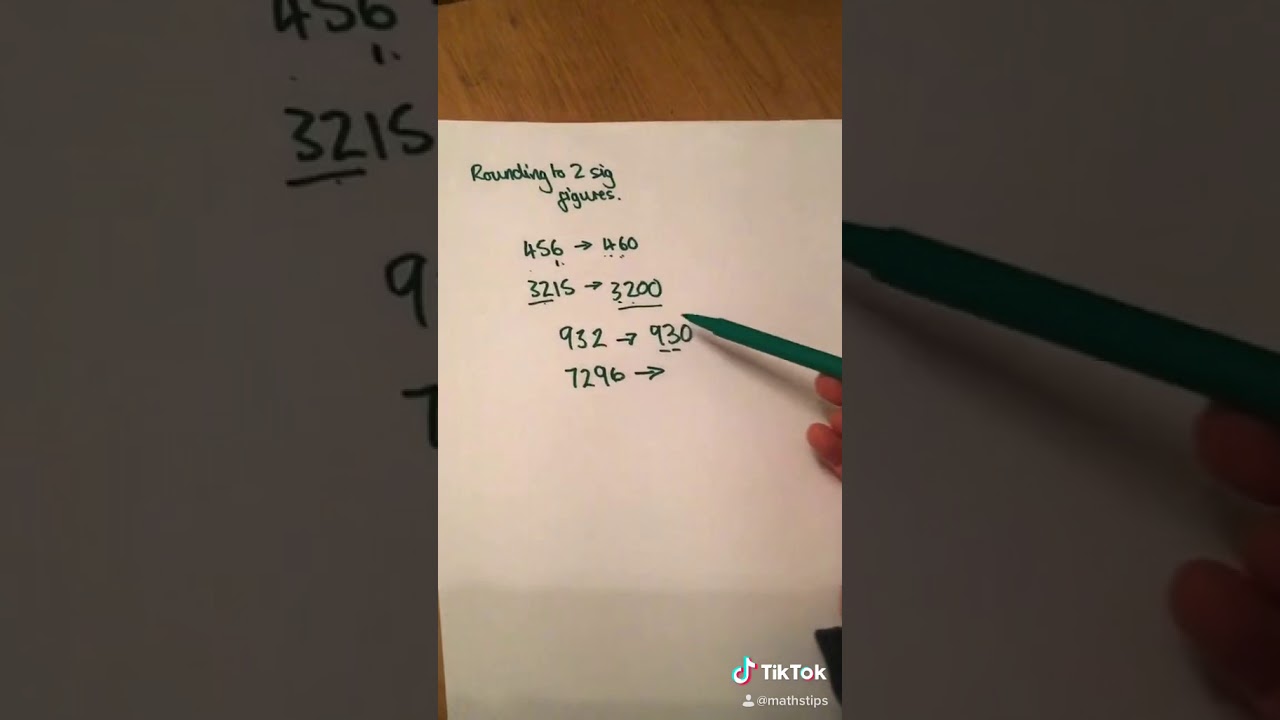 Rounding to 2 sig
figures.
456 → 460
3215 → 3200
932 → 930
7296 →
TikTok
@mathstips
456
3215
9
7